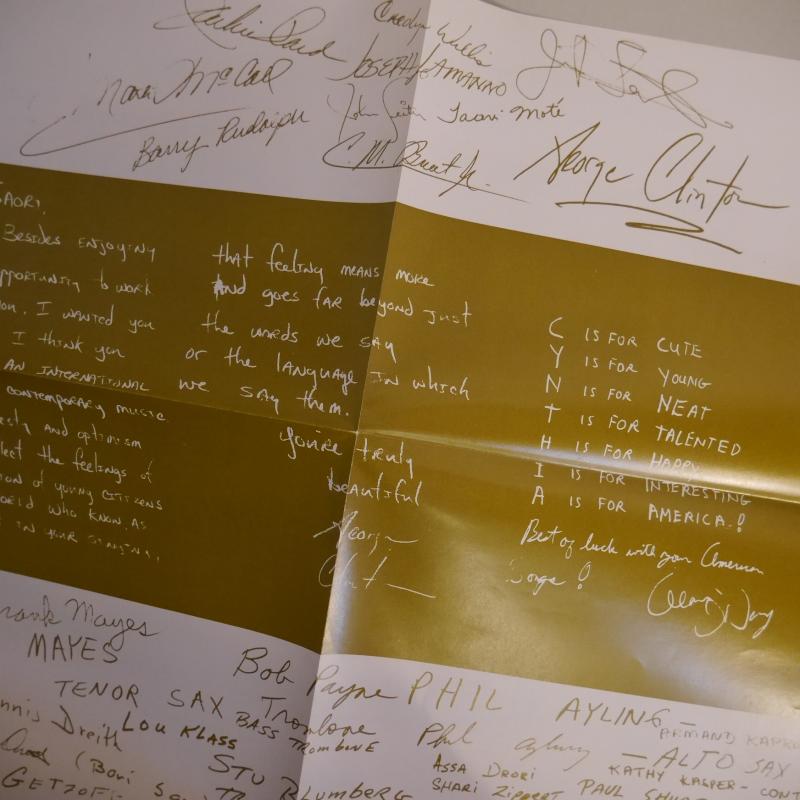 Jackie Ward
Carolyn Willis
Nora McCall
JOSEPH LAMANNO
John
Saori Moté
Barry Rudolph
C.M.
George Clinton
SAORI,
Besides ENJOYING
opportunity to work
I wanted you
I think you
AN INTERNATIONAL
contemporary music
and optimism
the feelings of
of young citizens
world who know, AS
IN YOUR
that feeling means more
And goes far beyond just
the words we say
or the language in which
we say them.
You're truly
beautiful
George
Clinton
C IS FOR CUTE
Y IS FOR YOUNG
N IS FOR NEAT
T IS FOR TALENTED
H IS FOR HAPPY
I IS FOR INTERESTING
A IS FOR AMERICA!
Best of luck with your American
songs!
Frank Mayes
MAYES
TENOR SAX
Bob Payne
Trombone
BASS TROMBONE
PHIL AYLING —
ARMAND KAPROFF
Dennis Dreith
LOU KLASS
Phil Ayling — ALTO SAX
STU BLUMBERG
ASSA DRORI
KATHY KASPER - CONT
GETZOFF
SHARI ZIPPERT
PAUL